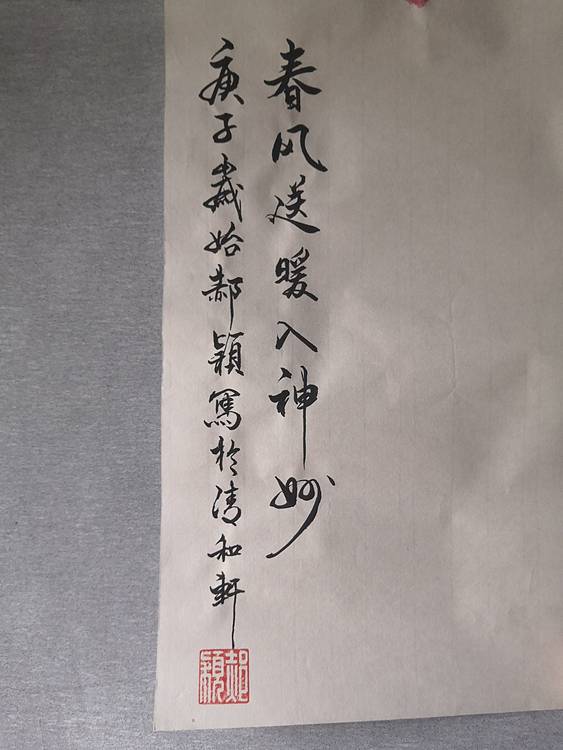 春风送暖入神妙
庚子歲始郝颖寫於清和軒
郝颖